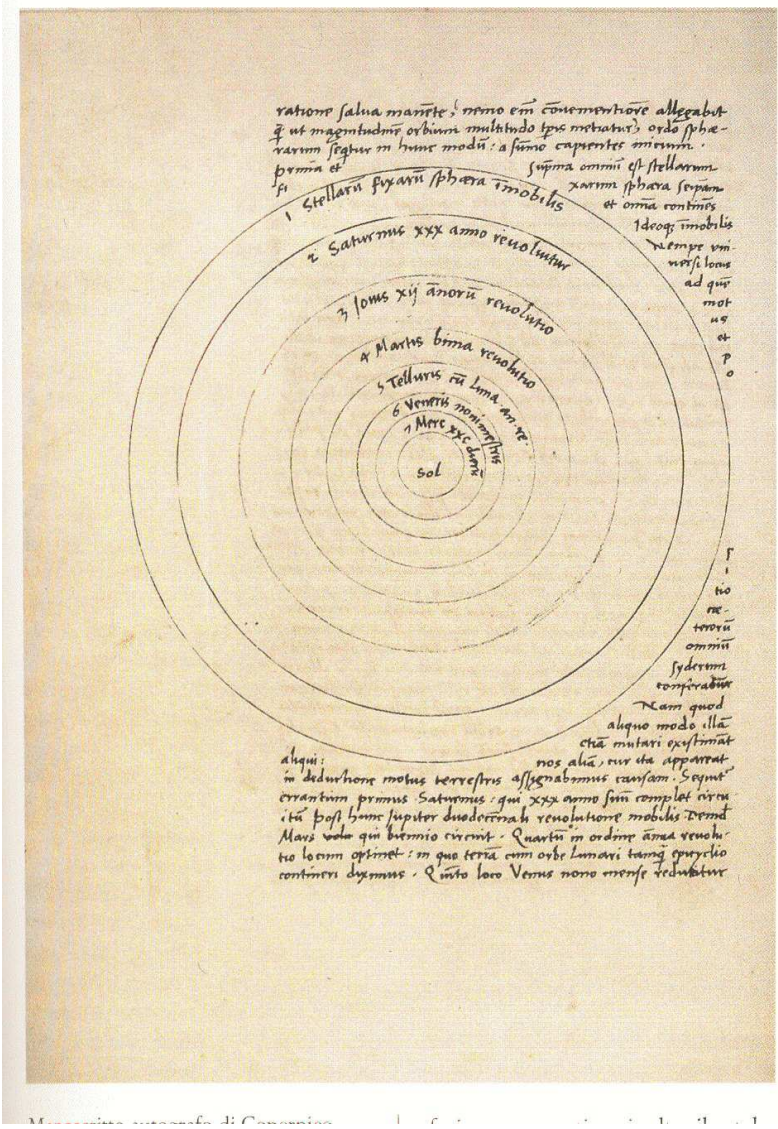 ratione salva manēte, nemo em̄ cōvenientiorē allegabit
q̄ ut magnitudinē orbium multitudo tp̄is metiatur, ordo sphæ-
rarum seq̄tur in hunc modū: a sūmo capientes initium.
prima et sup̄ma omniū est stellarum
fi xarum sphæra seip̄am
et omīa continēs
Ideoq; īmobilis
Nempe uni-
versi locus
ad quē
mot
us
et
p
o
1 Stellarū fixarū sphæra īmobilis
2 Saturnus xxx anno revoluitur
3 Jovis xij ānorū revolutio
4 Martis bima revolutio
5 Telluris cū Luna an. re.
6 Veneris nonimestris
7 Merc xxc dierū
Sol
s
i
tio
cæ-
terorū
omniū
syderum
conferatur
Nam quod
aliquo modo illā
etiā mutari existimāt
aliqui: nos aliā, cur ita appareat
in deductione motus terrestris assignabimus causam. Sequit̄
errantium primus Saturnus: qui xxx anno suū complet circu
itū Post hunc Jupiter duodecēnali revolutione mobilis Deind
Mars qui biennio circuit. Quartū in ordine ānua revolu-
tio locum optinet: in quo terrā cum orbe Lunari tamq̄ epicyclo
contineri diximus. Quīto loco Venus nono mense reducitur
Manoscritto autografo di Copernico